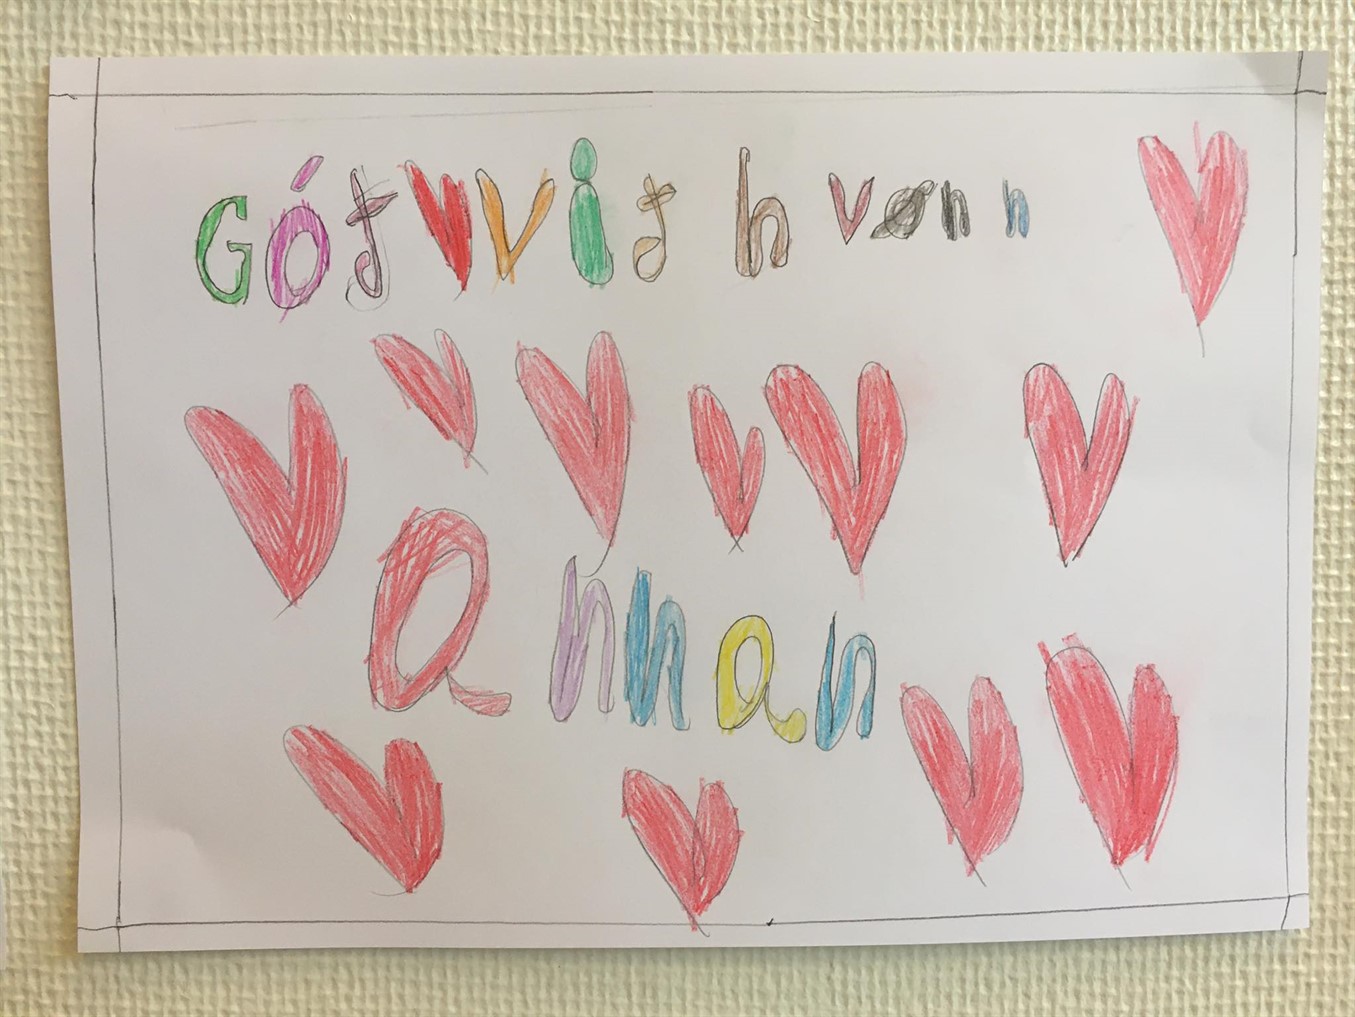 Góð við hvønn
annan